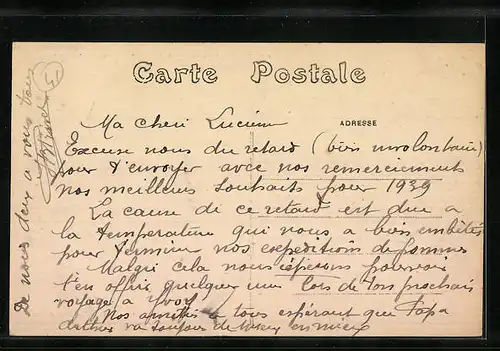 Carte Postale
ADRESSE
Ma cheri Lucien
Excuse nous du retard (bien involontaire)
pour t'envoyer avec nos remerciements
nos meilleurs souhaits pour 1939
La cause di ce retard est due a
la temperature qui nous a bien embêtés
pour terminer nos expeditions de pommes
Malgri cela nous espérons pouvoir
t'en offrir quelques unes lors de ton prochain
voyage a Ivory
Nos amitiés a tous espérant que Papa
va toujours de mieux en mieux
De nous deux a vous tous